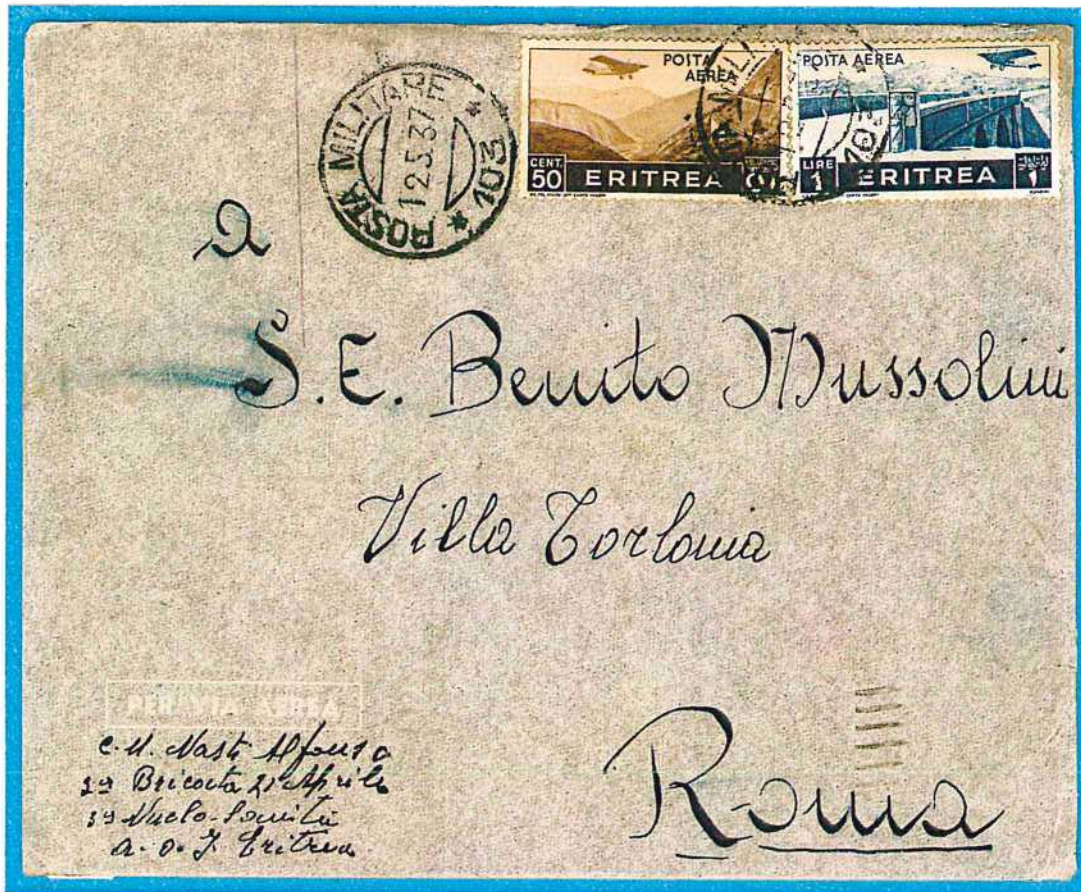 POSTA MILITARE * 103 *
12.5.37
POSTA AEREA
CENT. 50 ERITREA
POSTA AEREA
LIRE 1 ERITREA
a
S. E. Benito Mussolini
Villa Torlonia
Roma
PER VIA AEREA
C. N. Nasti Alfonso
21 Aprile
3ª Nucleo Sanità
A. O. I. Eritrea